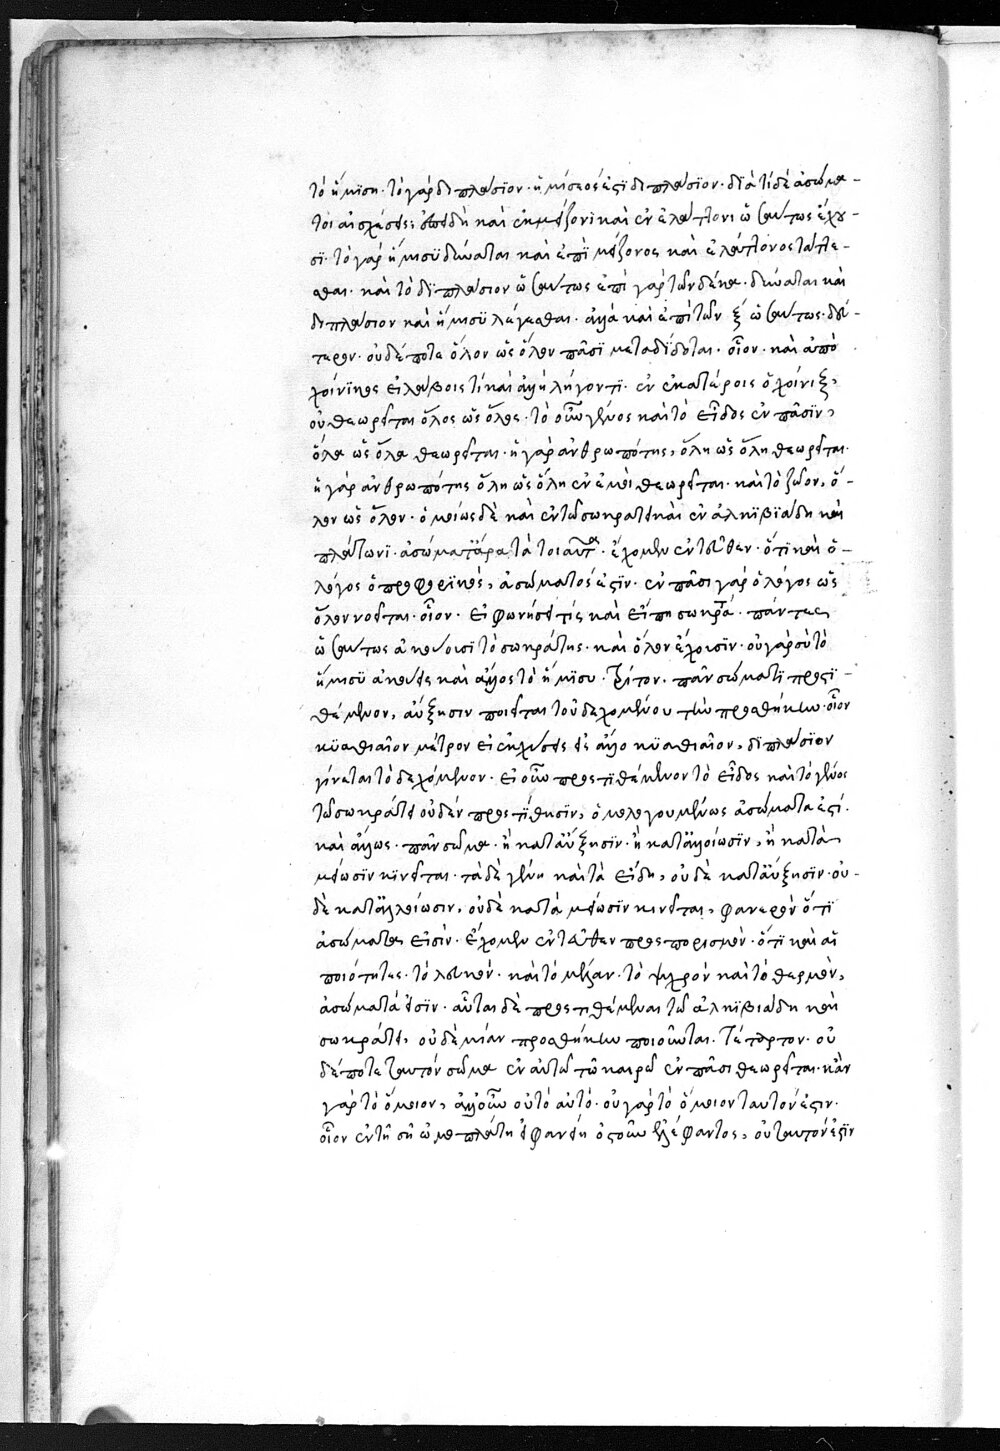 τὸ ἥμϊση· τὸ γὰρ διπλάσϊον· ἡμίσεός ἐστϊ διπλάσϊον· διὰ τί δὲ ἀσώμα-
τοι αἱ σχέσεις; ἐπειδὴ καὶ ἐν μείζονι καὶ ἐν ἐλάττονι ὡσαύτως ἔχου-
σϊ· τὸ γὰρ ἥμισϋ δύναται καὶ ἐπϊ μείζονος καὶ ἐλάττονος τάττε-
σθαι· καὶ τὸ δϊπλάσιον ὡσαύτως ἐπὶ γὰρ τῶν δέκα· δύναται καὶ
διπλάσιον καὶ ἥμισϋ λέγεσθαι· ἀλλὰ καὶ ἐπὶ τῶν ξ ὡσαύτως· δεύ-
τερον· οὐδέποτε ὅλον ὡς ὅλον πᾶσϊ μεταδίδοται· οἷον· καὶ ἀπὸ
χοίνϊκος εἰ λάβοις τί καὶ ἀλλήλην ὄντι· ἐν ἑκατέροις ὁ χοίνιξ,
οὐ θεωρεῖται ὅλος ὡς ὅλος· τὸ οὖν γένος καὶ τὸ εἶδος ἐν πᾶσϊν,
ὅλα ὡς ὅλα θεωρεῖται· ἡ γὰρ ἀνθρωπότης, ὅλη ὡς ὅλη θεωρεῖται·
ἡ γὰρ ἀνθρωπότης ὅλη ὡς ὅλη ἐν ἐμοὶ θεωρεῖται· καὶ τὸ ζῶον, ὅ-
λον ὡς ὅλον· ὁμοίως δὲ καὶ ἐν τῶ σωκράτει καὶ ἐν ἀλκϊβϊάδη καὶ
πλάτωνϊ· ἀσώματα ἄρα τὰ τοιαῦτα· ἔχομεν ἐντεῦθεν· ὅτϊ καὶ ὁ
λόγος ὁ προφορϊκὸς, ἀσώματός ἐστϊν· ἐν πᾶσι γὰρ ὁ λόγος ὡς
ὅλον νοεῖται· οἷον· εἰ φωνήσει τίς καὶ εἴπη σωκράτης· πάντες
ὡσαύτως ἀκούοισϊ τὸ σωκράτης· καὶ ὅλον ἔχοισϊν· οὐ γὰρ οὗτὸ
ἥμισϋ ἀκούει καὶ ἄλλος τὸ ἥμϊσυ· Τρίτον· πᾶν σώματϊ προστϊ-
θέμενον, αὔξησιν ποιεῖται τοῦ δεχομένου τὴν προσθήκην· οἷον
κϋαθιαῖον μέτρον εἰ ἐκχύσεις εἰς ἄλλο κϋαθιαῖον, δϊπλάσϊον
γίνεται τὸ δεχόμενον· εἰ οὖν προστϊθέμενον τὸ εἶδος καὶ τὸ γένος
τῶ σωκράτει οὐδὲν προστϊθησϊν, ὁμολογουμένως ἀσώματα ἐστί·
καὶ ἄλλως· πᾶν σῶμα· ἢ κατ' αὔξησϊν· ἢ κατ' ἀλλοίωσϊν, ἢ κατὰ
μείωσϊν κϊνεῖται· τὰ δὲ γένη καὶ τὰ εἴδη, οὐδὲ κατ' αὔξησϊν· οὐ-
δὲ κατ' ἀλλοίωσιν, οὐδὲ κατὰ μείωσϊν κινεῖται, φανερὸν ὅτϊ
ἀσώματα εἰσϊν· ἔχομεν ἐντεῦθεν προσπορισμὸν· ὅτϊ καὶ αἱ
ποιότητες· τὸ λευκόν· καὶ τὸ μέλαν· τὸ ψυχρὸν καὶ τὸ θερμὸν,
ἀσώματά εἰσϊν· αὗται δὲ προστιθέμεναι τῶ ἀλκϊβιάδη καὶ
σωκράτει, οὐδὲ μίαν προσθήκην ποιοῦνται· Τέταρτον· οὐ
δέποτε ταυτόν σῶμα ἐν αὐτῶ τῶ καιρῶ ἐν πᾶσι θεωρεῖται· κἂν
γὰρ τὸ ὅμοιον, ἀλλ' οὖν οὐ τὸ αὐτό· οὐ γὰρ τὸ ὅμοιον ταυτόν ἐστιν·
οἷον ἐν τῆ σῆ ὠμοπλάτη εἰ φανείη ὀστοῦν ἐλέφαντος, οὐ ταυτόν ἐστϊν